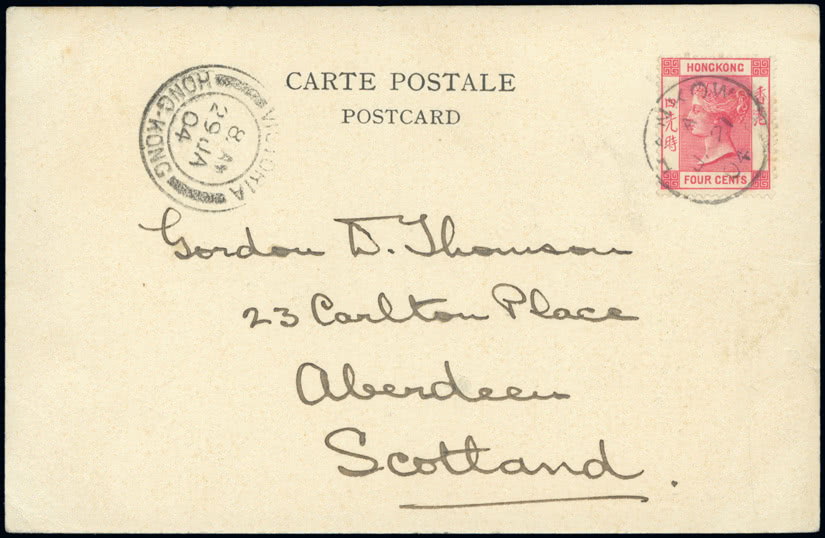 CARTE POSTALE
POSTCARD
VICTORIA
HONG-KONG
8 AM
29 JA
04
HONGKONG
香港
四先時
FOUR CENTS
Gordon D. Thomson
23 Carlton Place
Aberdeen
Scotland.